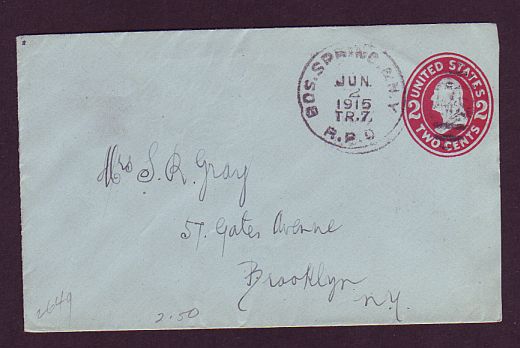 BOS. SPRING. & N.Y.
JUN
2
1915
TR.7.
R.P.O
UNITED STATES
2 2
TWO CENTS
Mrs S. R. Gray
57 Gates Avenue
Brooklyn
N.Y.
2.50